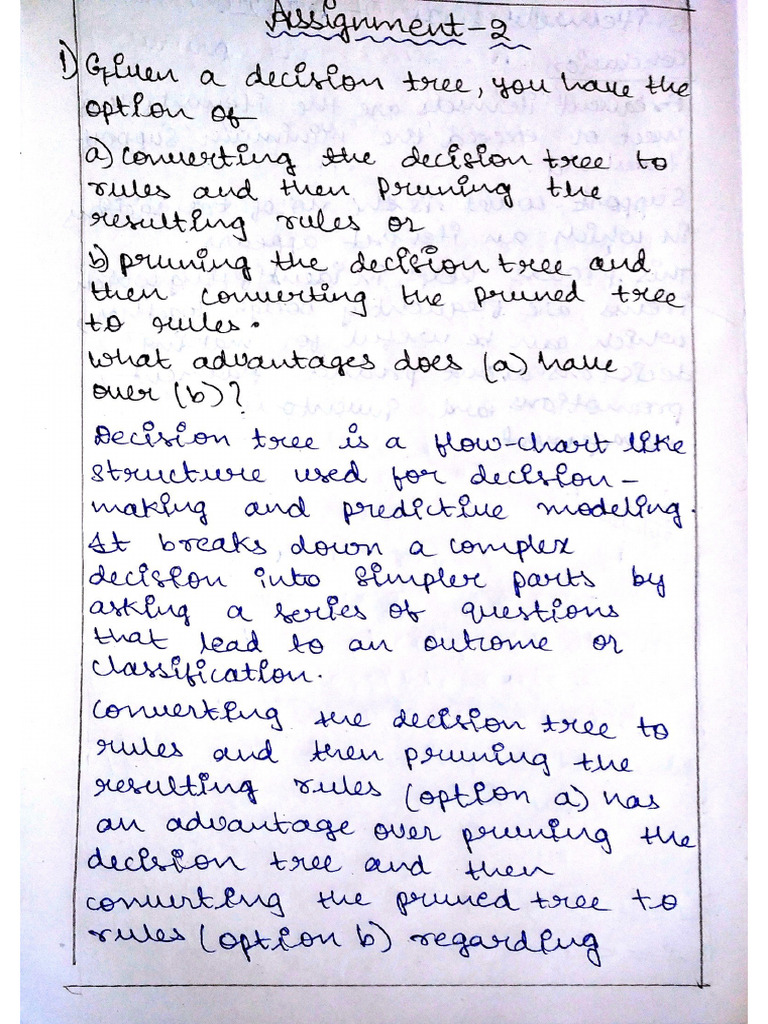 Assignment-2
1) Given a decision tree, you have the
option of
a) converting the decision tree to
rules and then pruning the
resulting rules or
b) pruning the decision tree and
then converting the pruned tree
to rules.
What advantages does (a) have
over (b)?
Decision tree is a flow-chart like
structure used for decision-
making and predictive modeling.
It breaks down a complex
decision into simpler parts by
asking a series of questions
that lead to an outcome or
classification.
Converting the decision tree to
rules and then pruning the
resulting rules (option a) has
an advantage over pruning the
decision tree and then
converting the pruned tree to
rules (option b) regarding